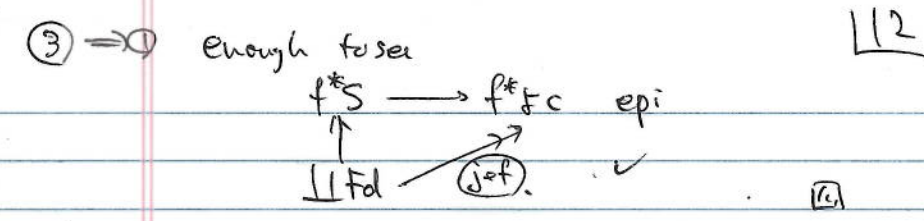 ③ ⇒ ① enough to see
112
f*S ⟶ f*よc epi
∐Fd jef. ✓